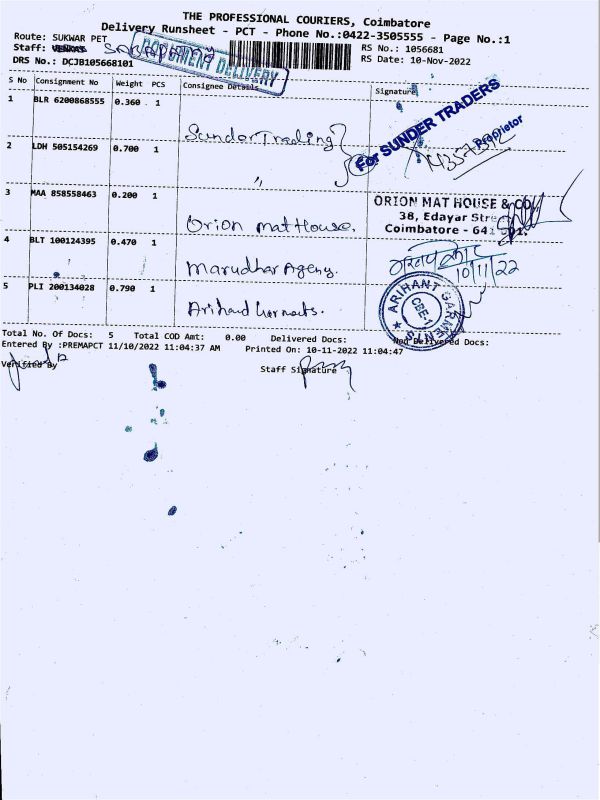 THE PROFESSIONAL COURIERS, Coimbatore
Delivery Runsheet - PCT - Phone No.:0422-3505555 - Page No.:1
Route: SUKWAR PET
RS No.: 1056681
Staff:
DOCUMENT DELIVERY
RS Date: 10-Nov-2022
DRS No.: DCJB105668101
S No Consignment No Weight PCS Consignee Details Signature
1 BLR 6200868555 0.360 1
Sunder Trading
For SUNDER TRADERS
Proprietor
2 LDH 505154269 0.700 1
"
3 MAA 858558463 0.200 1
Orion mat House.
ORION MAT HOUSE & CO
38, Edayar Street
Coimbatore - 641 001.
4 BLT 100124395 0.470 1
Marudhar Ageny.
10/11/22
5 PLI 200134028 0.790 1
ARIHANT GARMENTS
CBE-1
Total No. Of Docs: 5 Total COD Amt: 0.00 Delivered Docs: Non Delivered Docs:
Entered By :PREMAPCT 11/10/2022 11:04:37 AM Printed On: 10-11-2022 11:04:47
Verified By
Staff Signature